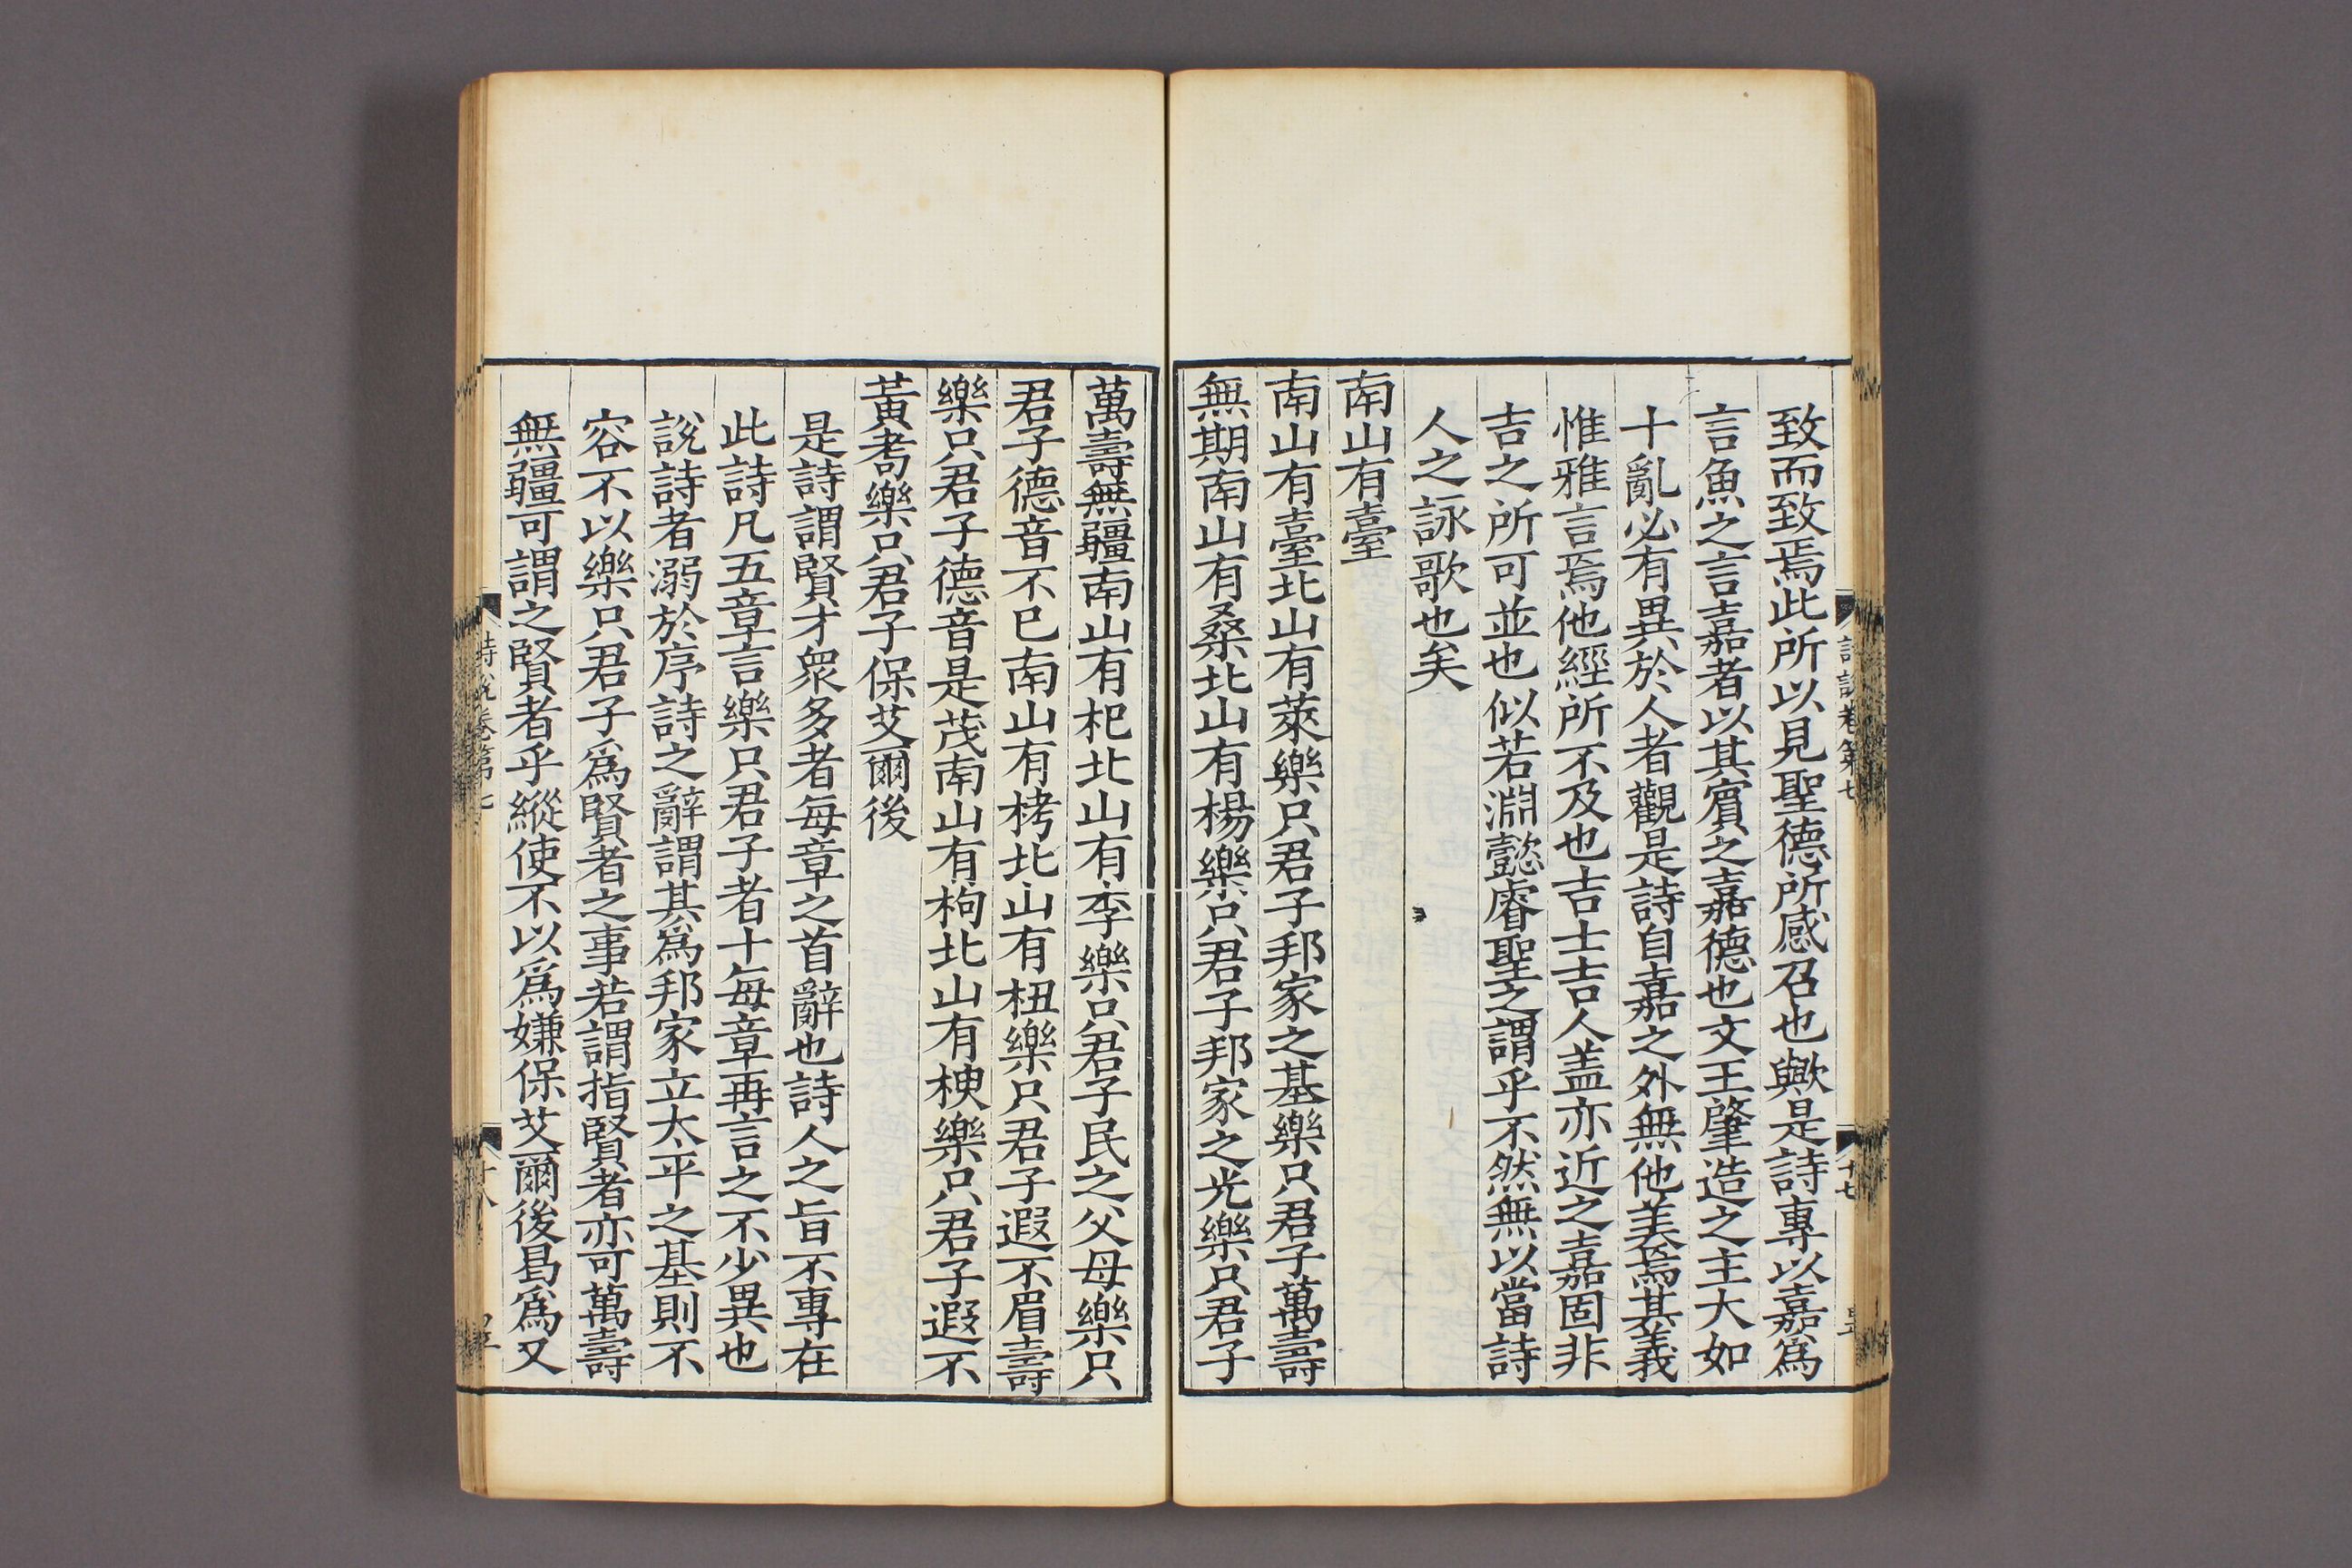 致而致焉此所以見聖德所感召也歟是詩專以嘉爲
言魚之言嘉者以其賓之嘉德也文王肇造之主大如
十亂必有異於人者觀是詩自嘉之外無他美焉其義
惟雅言焉他經所不及也吉士吉人盖亦近之嘉固非
吉之所可並也似若淵懿睿聖之謂乎不然無以當詩
人之詠歌也矣
南山有臺
南山有臺北山有萊樂只君子邦家之基樂只君子萬壽
無期南山有桑北山有楊樂只君子邦家之光樂只君子
詩說卷第七
十七
萬壽無疆南山有杞北山有李樂只君子民之父母樂只
君子德音不已南山有栲北山有杻樂只君子遐不眉壽
樂只君子德音是茂南山有枸北山有楰樂只君子遐不
黃耇樂只君子保艾爾後
是詩謂賢才衆多者每章之首辭也詩人之旨不專在
此詩凡五章言樂只君子者十每章再言之不少異也
說詩者溺於序詩之辭謂其爲邦家立太平之基則不
容不以樂只君子爲賢者之事若謂指賢者亦可萬壽
無疆可謂之賢者乎縱使不以爲嫌保艾爾後曷爲又
詩說卷第七
十八